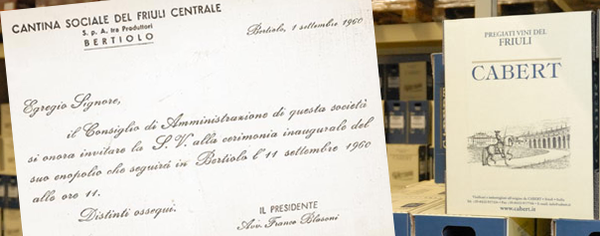 CANTINA SOCIALE DEL FRIULI CENTRALE
S. p. A. tra Produttori
BERTIOLO
Bertiolo, 1 settembre 1960
Egregio Signore,
il Consiglio di Amministrazione di questa società
si onora invitare la S. V. alla cerimonia inaugurale del
suo enopolio che seguirà in Bertiolo l'11 settembre 1960
alle ore 11.
Distinti ossequi.
IL PRESIDENTE
Avv. Franco Blasoni
PREGIATI VINI DEL
FRIULI
CABERT
www.cabert.it